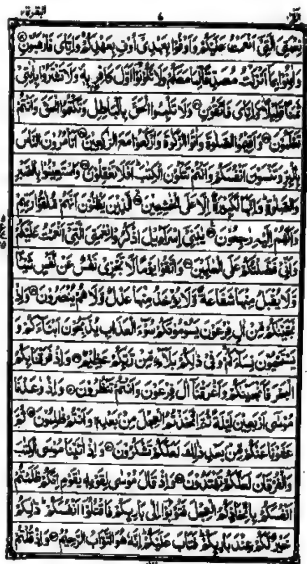 البقرة ٢
6
نعمتي التي انعمت عليكم واوفوا بعهدي اوف بعهدكم واياي فارهبون
وامنوا بما انزلت مصدقا لما معكم ولا تكونوا اول كافر به ولا تشتروا بايتي
ثمنا قليلا واياي فاتقون ولا تلبسوا الحق بالباطل وتكتموا الحق وانتم
تعلمون واقيموا الصلوة واتوا الزكوة واركعوا مع الركعين اتامرون الناس
بالبر وتنسون انفسكم وانتم تتلون الكتب افلا تعقلون واستعينوا بالصبر
والصلوة وانها لكبيرة الا على الخشعين الذين يظنون انهم ملقوا ربهم
وانهم اليه رجعون يبني اسراءيل اذكروا نعمتي التي انعمت عليكم
واني فضلتكم على العلمين واتقوا يوما لا تجزي نفس عن نفس شيئا
ولا يقبل منها شفاعة ولا يؤخذ منها عدل ولا هم ينصرون واذ
نجينكم من ال فرعون يسومونكم سوء العذاب يذبحون ابناءكم و
يستحيون نساءكم وفي ذلكم بلاء من ربكم عظيم واذ فرقنا بكم
البحر فانجينكم واغرقنا ال فرعون وانتم تنظرون واذ وعدنا
موسى اربعين ليلة ثم اتخذتم العجل من بعده وانتم ظلمون ثم
عفونا عنكم من بعد ذلك لعلكم تشكرون واذ اتينا موسى الكتب
والفرقان لعلكم تهتدون واذ قال موسى لقومه يقوم انكم ظلمتم
انفسكم باتخاذكم العجل فتوبوا الى بارئكم فاقتلوا انفسكم ذلكم
خير لكم عند بارئكم فتاب عليكم انه هو التواب الرحيم واذ قلتم